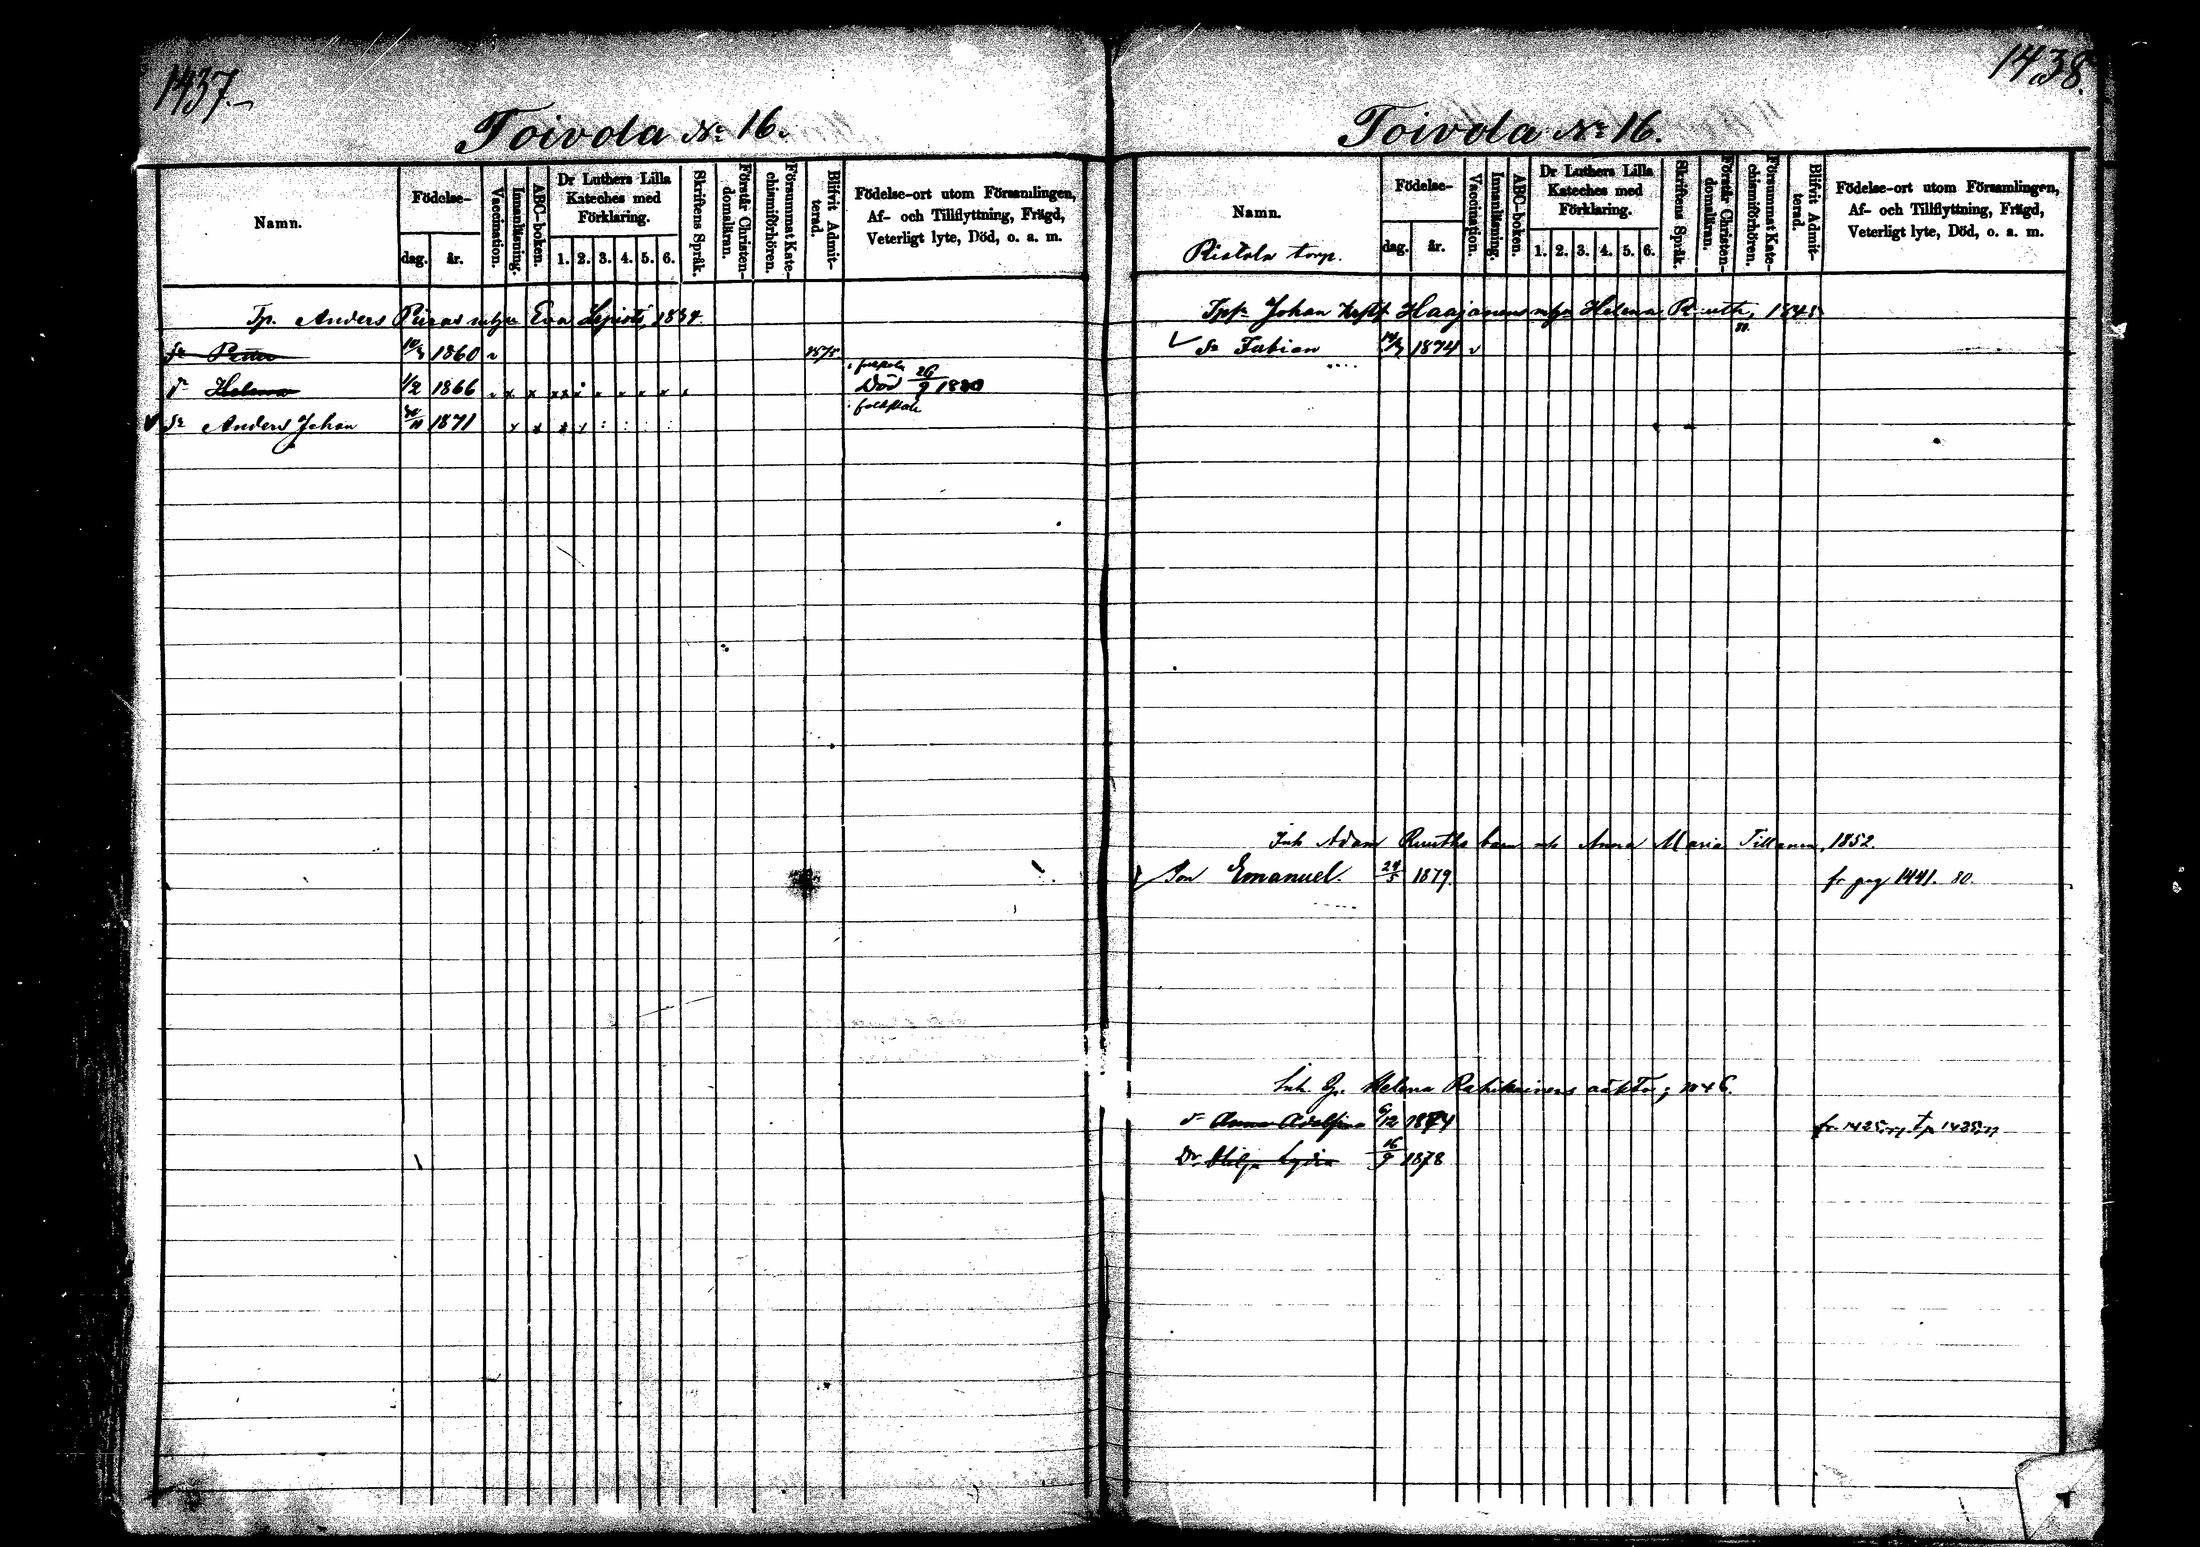 1437.
Toivola No 16.
Namn.
Födelse-
dag.
år.
Vaccination.
Innanläsning.
ABC-boken.
Dr Luthers Lilla
Kateches med
Förklaring.
1. 2. 3. 4. 5. 6.
Skriftens Språk.
Förstår Christen-
domsläran.
Försummat Kate-
chismiförhören.
Blifvit Admit-
terad.
Födelse-ort utom Församlingen,
Af- och Tillflyttning, Frägd,
Veterligt lyte, Död, o. a. m.
Tp. Anders Eva 1834.
1860
Helena 1/2 1866 Död 26/9 1880
Anders Johan 1871
1438.
Toivola No 16.
Namn.
Ristola torp.
Födelse-
dag.
år.
Vaccination.
Innanläsning.
ABC-boken.
Dr Luthers Lilla
Kateches med
Förklaring.
1. 2. 3. 4. 5. 6.
Skriftens Språk.
Förstår Christen-
domsläran.
Försummat Kate-
chismiförhören.
Blifvit Admit-
terad.
Födelse-ort utom Församlingen,
Af- och Tillflyttning, Frägd,
Veterligt lyte, Död, o. a. m.
Johan Haajanens Helena
Fabian 1874
Inh Adam Ruuths barn Anna Maria Tillanen, 1852.
Son Emanuel. 24/5 1879. fr pag 1441. 80.
Inh. Helena
Anna Adolfina 6/12 1874
Hilja Lydia 16/9 1878